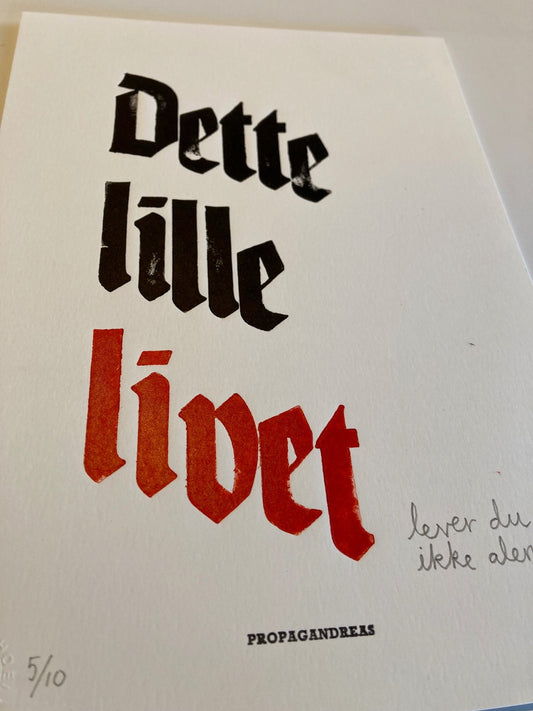 Dette
lille
livet
lever du
ikke
PROPAGANDREAS
5/10